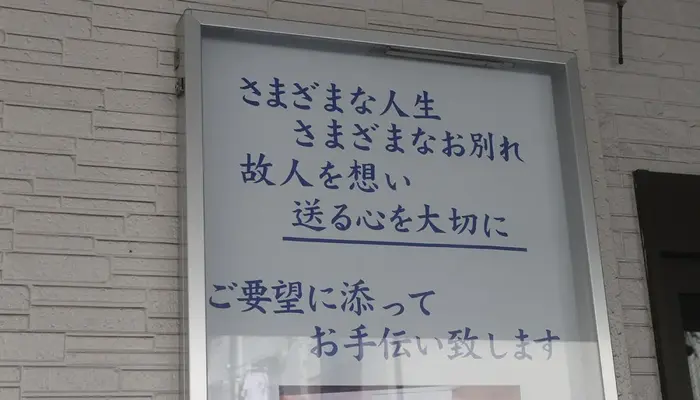 さまざまな人生
さまざまなお別れ
故人を想い
送る心を大切に
ご要望に添って
お手伝い致します